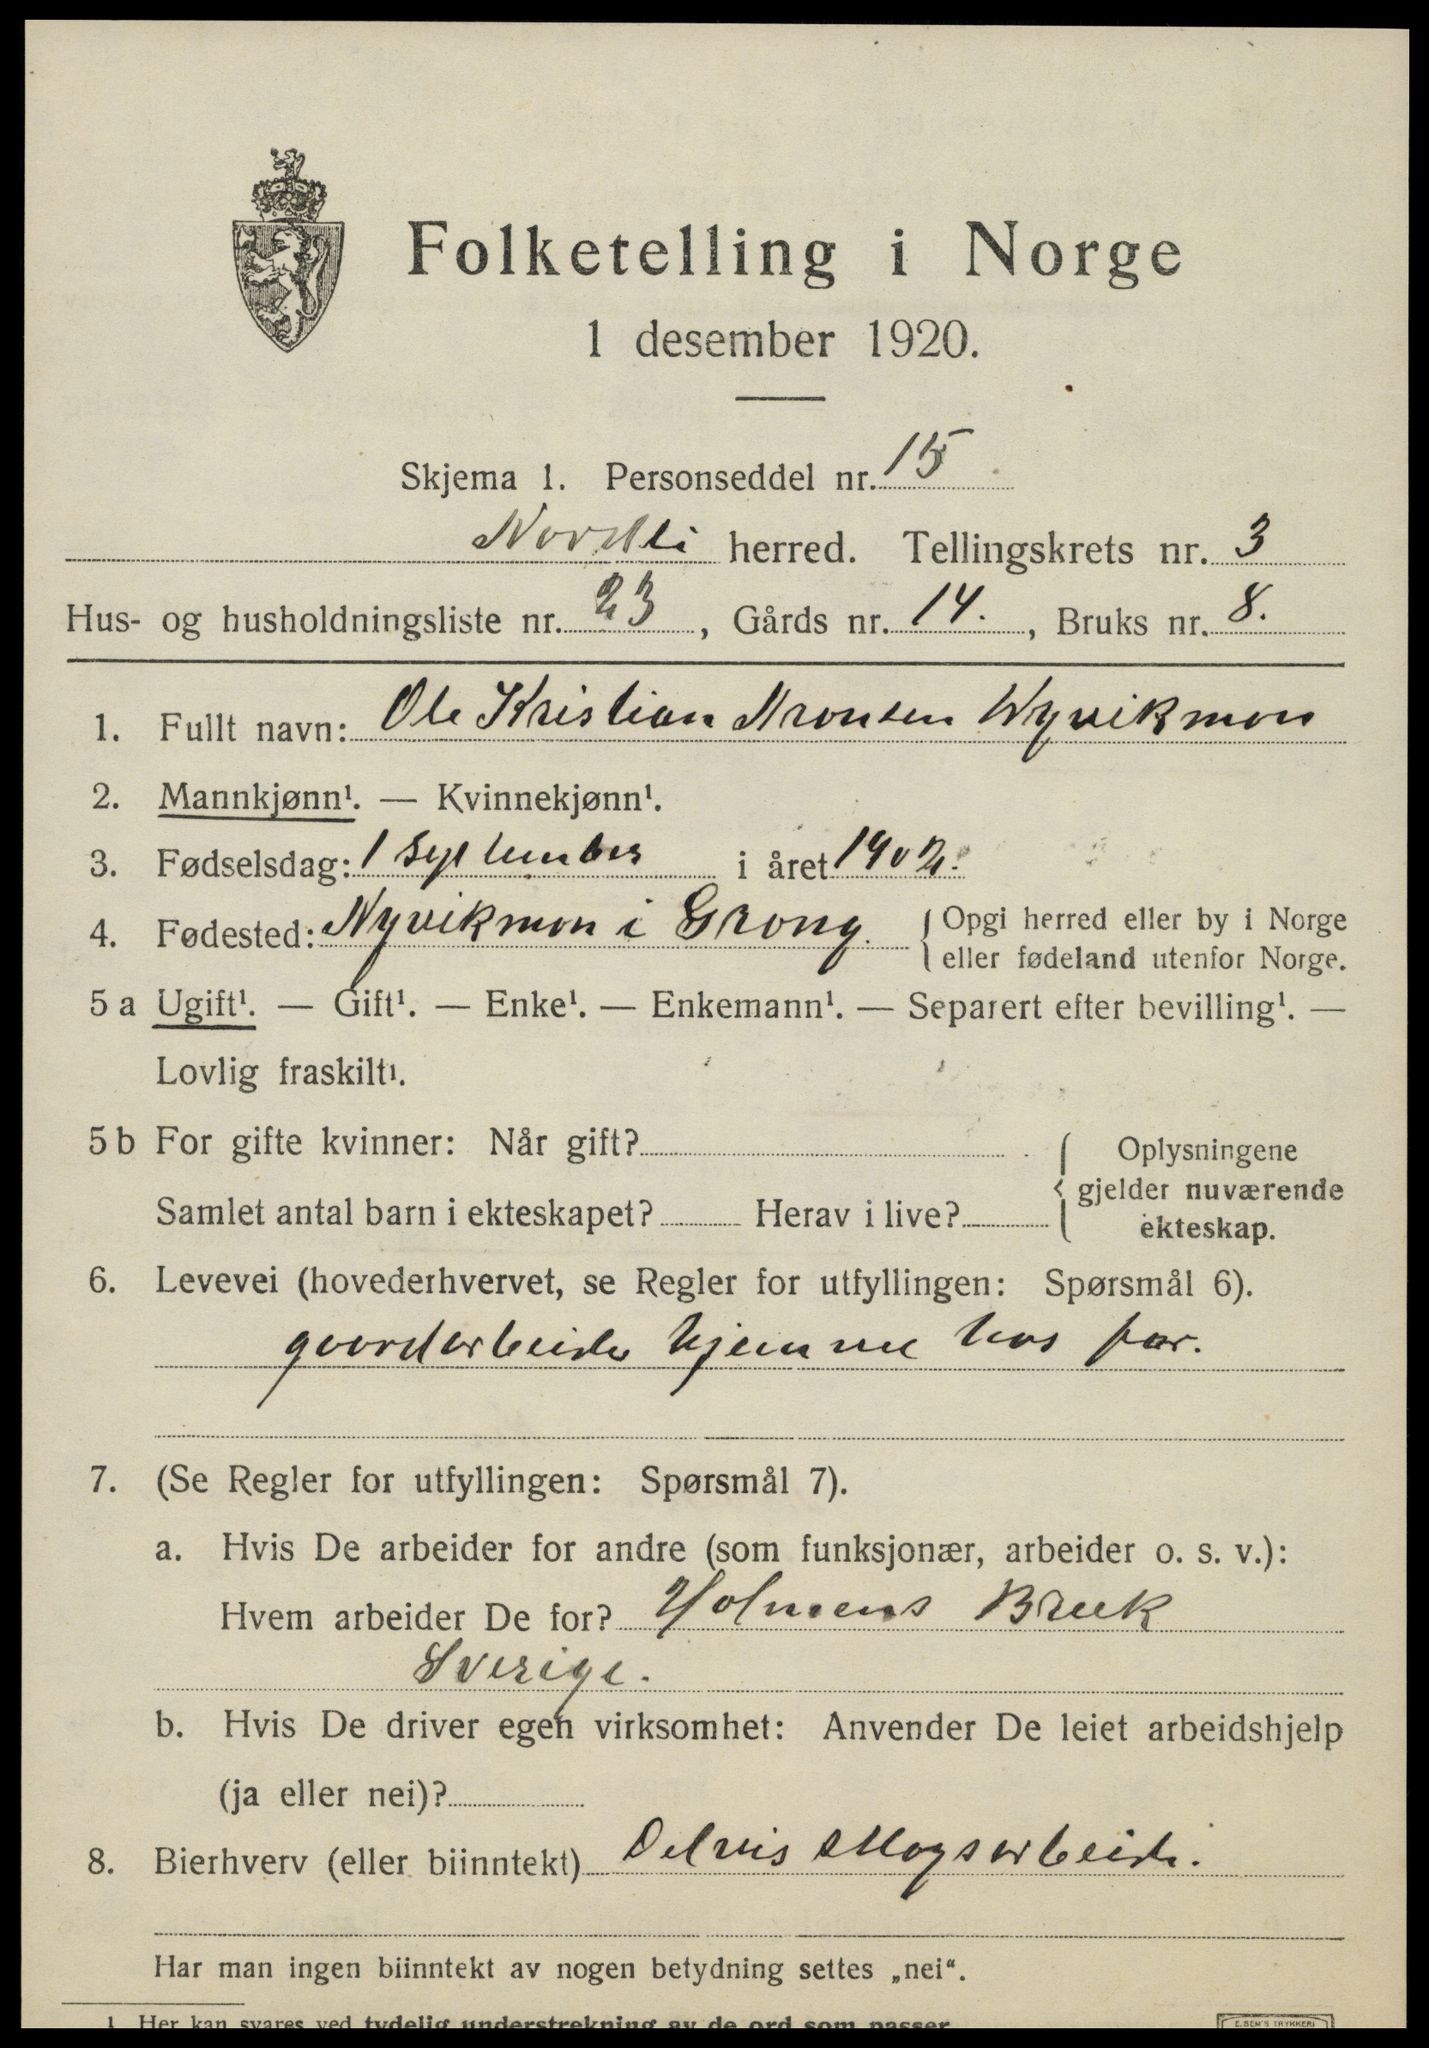 Folketelling i Norge
1 desember 1920.
Skjema 1. Personseddel nr. 15
Nordli herred. Tellingskrets nr. 3
Hus- og husholdningsliste nr. 23, Gårds nr. 14., Bruks nr. 8.
1. Fullt navn: Ole Kristian Aronsen Nyvikmon
2. Mannkjønn¹. — Kvinnekjønn¹.
3. Fødselsdag: 1 September i året 1902.
4. Fødested: Nyvikmon i Grong. { Opgi herred eller by i Norge
eller fødeland utenfor Norge.
5 a Ugift¹. — Gift¹. — Enke¹. — Enkemann¹. — Separert efter bevilling¹. —
Lovlig fraskilt¹.
5 b For gifte kvinner: Når gift?
Samlet antal barn i ekteskapet? Herav i live?
{ Oplysningene
gjelder nuværende
ekteskap.
6. Levevei (hovederhvervet, se Regler for utfyllingen: Spørsmål 6).
gaardarbeide hjemme hos far.
7. (Se Regler for utfyllingen: Spørsmål 7).
a. Hvis De arbeider for andre (som funksjonær, arbeider o. s. v.):
Hvem arbeider De for? Holmens Bruk
Sverige.
b. Hvis De driver egen virksomhet: Anvender De leiet arbeidshjelp
(ja eller nei)?
8. Bierhverv (eller biinntekt) Delvis skogsarbeide.
Har man ingen biinntekt av nogen betydning settes „nei“.
1 Her kan svares ved tydelig understrekning av de ord som passer
E. SEM'S TRYKKERI